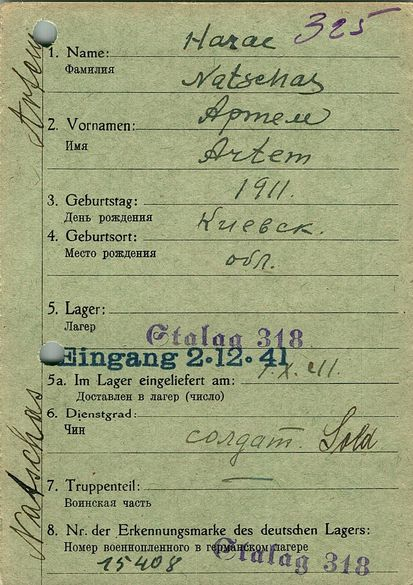 325
Начас
1. Name:
Фамилия
Natschas
2. Vornamen:
Артем
Имя
Artem
3. Geburtstag: 1911.
День рождения
4. Geburtsort: Киевск.
Место рождения
обл.
5. Lager:
Лагер
Stalag 318
Eingang 2.12.41
5a. Im Lager eingeliefert am:
Доставлен в лагер (число)
6. Dienstgrad:
Чин
солдат. Sold
7. Truppenteil: —
Воинская часть
8. Nr. der Erkennungsmarke des deutschen Lagers:
Номер военнопленного в германском лагере
15408
Stalag 318
Artem
Natschas